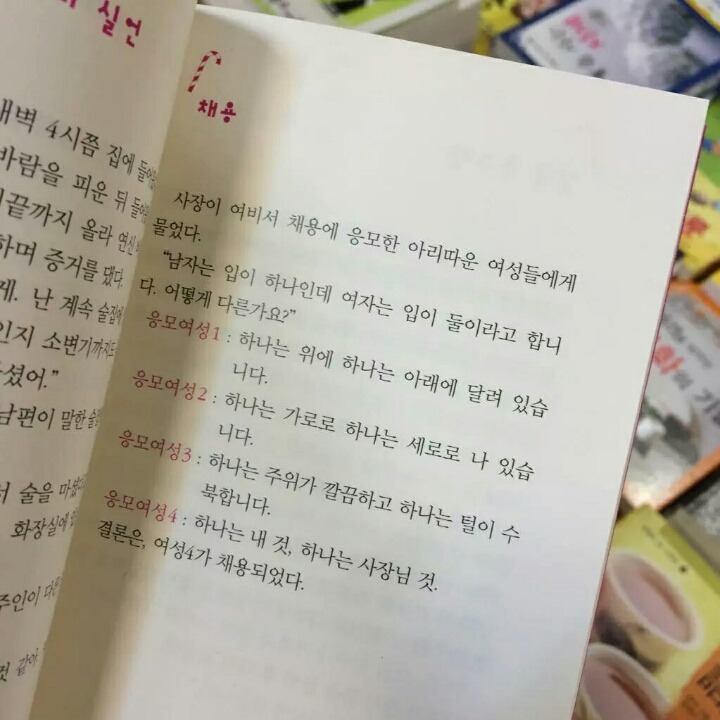 실언
새벽 4시쯤 집에
바람을 피운 뒤
끝까지 올라 연신
하며 증거를 댔다.
게. 난 계속 술집에
인지 소변기까지도
셨어.”
남편이 말한
술을 마셨다
화장실에
주인이
같아.
채용
사장이 여비서 채용에 응모한 아리따운 여성들에게
물었다.
“남자는 입이 하나인데 여자는 입이 둘이라고 합니
다. 어떻게 다른가요?”
응모여성1 : 하나는 위에 하나는 아래에 달려 있습
니다.
응모여성2 : 하나는 가로로 하나는 세로로 나 있습
니다.
응모여성3 : 하나는 주위가 깔끔하고 하나는 털이 수
북합니다.
응모여성4 : 하나는 내 것, 하나는 사장님 것.
결론은, 여성4가 채용되었다.